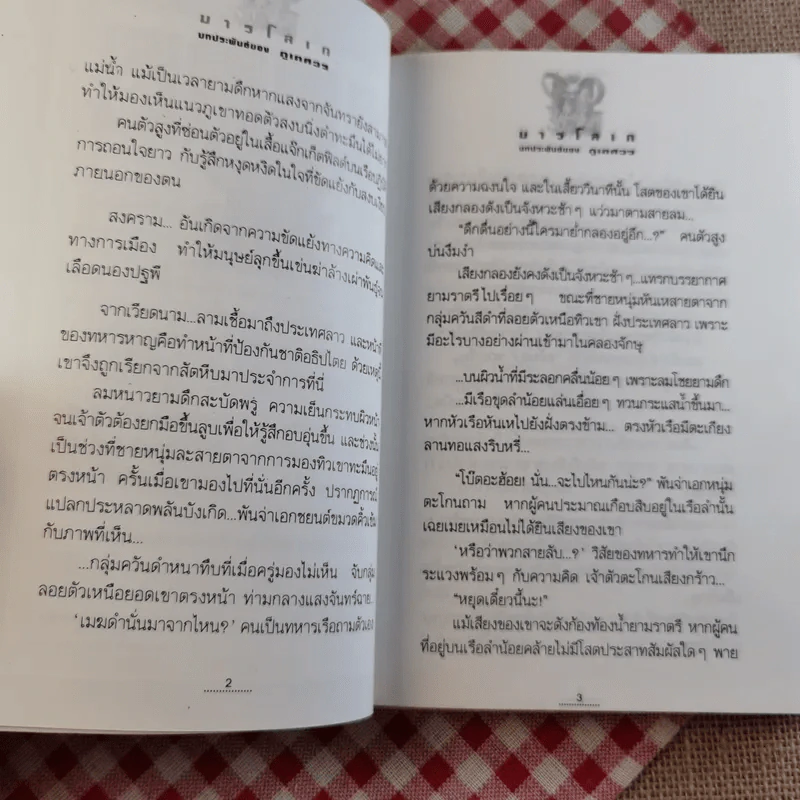 มารโลเก
บทประพันธ์ของ ภูเตศวร
แม่น้ำ แม้เป็นเวลายามดึกหากแสงจากจันทรายังส
ทำให้มองเห็นแนวภูเขาทอดตัวสงบนิ่งดำทะมึนได้
คนตัวสูงที่ซ่อนตัวอยู่ในเสื้อแจ๊กเก็ตฟิลด์บนเรือน
การถอนใจยาว กับรู้สึกหงุดหงิดในใจที่ขัดแย้งกับสงบ
ภายนอกของตน
สงคราม... อันเกิดจากความขัดแย้งทางความคิดและ
ทางการเมือง ทำให้มนุษย์ลุกขึ้นเข่นฆ่าล้างเผ่าพันธุ์
เลือดนองปฐพี
จากเวียดนาม...ลามเชื้อมาถึงประเทศลาว และหน้าที่
ของทหารหาญคือทำหน้าที่ป้องกันชาติอธิปไตย ด้วยเหตุนี้
เขาจึงถูกเรียกจากสัตหีบมาประจำการที่นี่
ลมหนาวยามดึกสะบัดพรู้ ความเย็นกระทบผิวหน้า
จนเจ้าตัวต้องยกมือขึ้นลูบเพื่อให้รู้สึกอบอุ่นขึ้น และช่วงนั้น
เป็นช่วงที่ชายหนุ่มละสายตาจากการมองทิวเขาทะมึนอยู่
ตรงหน้า ครั้นเมื่อเขามองไปที่นั่นอีกครั้ง ปรากฏการณ์
แปลกประหลาดพลันบังเกิด...พันจ่าเอกชยนต์ขมวดคิ้วเข้ม
กับภาพที่เห็น...
...กลุ่มควันดำหนาทึบที่เมื่อครู่มองไม่เห็น จับกลุ่ม
ลอยตัวเหนือยอดเขาตรงหน้า ท่ามกลางแสงจันทร์ฉาย...
'เมฆดำนั่นมาจากไหน?' คนเป็นทหารเรือถามตัวเอง
2
มารโลเก
บทประพันธ์ของ ภูเตศวร
ด้วยความฉงนใจ และในเสี้ยววินาทีนั้น โสตของเขาได้ยิน
เสียงกลองดังเป็นจังหวะช้าๆ แว่วมาตามสายลม...
"ดึกดื่นอย่างนี้ใครมาย่ำกลองอยู่อีก...?" คนตัวสูง
บ่นงึมงำ
เสียงกลองยังคงดังเป็นจังหวะช้าๆ...แทรกบรรยากาศ
ยามราตรีไปเรื่อยๆ ขณะที่ชายหนุ่มหันเหสายตาจาก
กลุ่มควันสีดำที่ลอยตัวเหนือทิวเขา ฝั่งประเทศลาว เพราะ
มีอะไรบางอย่างผ่านเข้ามาในคลองจักษุ
...บนผิวน้ำที่มีระลอกคลื่นน้อยๆ เพราะลมโชยยามดึก
...มีเรือขุดลำน้อยแล่นเอื่อยๆ ทวนกระแสน้ำขึ้นมา...
หากหัวเรือหันเหไปยังฝั่งตรงข้าม... ตรงหัวเรือมีตะเกียง
ลานทอแสงริบหรี่...
"โบ๊ตอะฮ้อย! นั่น...จะไปไหนกันน่ะ?" พันจ่าเอกหนุ่ม
ตะโกนถาม หากผู้คนประมาณเกือบสิบอยู่ในเรือลำนั้น
เฉยเมยเหมือนไม่ได้ยินเสียงของเขา
'หรือว่าพวกสายลับ...?' วิสัยของทหารทำให้เขานึก
ระแวงพร้อมๆ กับความคิด เจ้าตัวตะโกนเสียงกร้าว...
"หยุดเดี๋ยวนี้นะ!"
แม้เสียงของเขาจะดังก้องท้องน้ำยามราตรี หากผู้คน
ที่อยู่บนเรือลำน้อยคล้ายไม่มีโสตประสาทสัมผัสใดๆ พาย
3